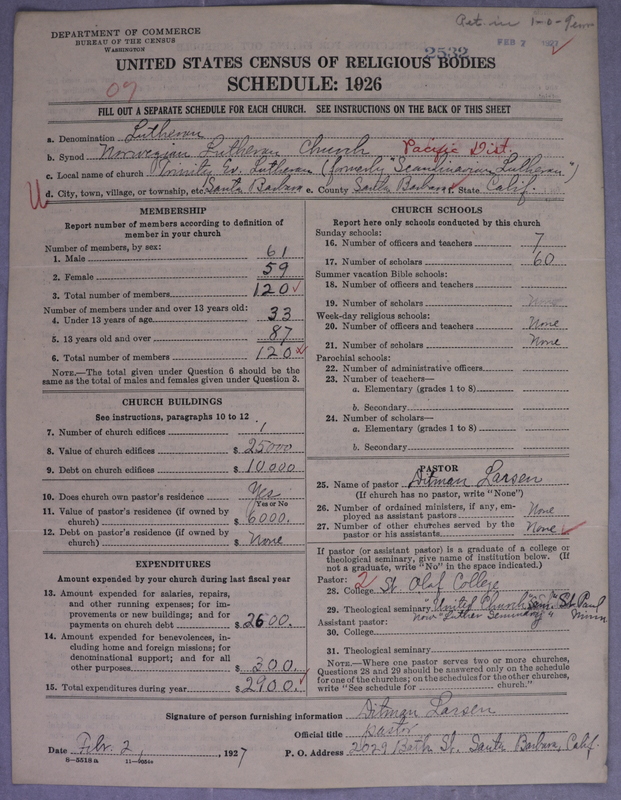 DEPARTMENT OF COMMERCE
BUREAU OF THE CENSUS
WASHINGTON
Act. in 1-0-
2532
FEB 7 1927
UNITED STATES CENSUS OF RELIGIOUS BODIES
SCHEDULE: 1926
09
FILL OUT A SEPARATE SCHEDULE FOR EACH CHURCH. SEE INSTRUCTIONS ON THE BACK OF THIS SHEET
a. Denomination Lutheran
b. Synod Norwegian Lutheran Church Pacific Dist.
c. Local name of church Ev. Lutheran (formerly "Scandinavian Lutheran")
d. City, town, village, or township, etc. Santa Barbara e. County Santa Barbara f. State Calif.
MEMBERSHIP
Report number of members according to definition of member in your church
Number of members, by sex:
1. Male 61
2. Female 59
3. Total number of members 120
Number of members under and over 13 years old:
4. Under 13 years of age 33
5. 13 years old and over 87
6. Total number of members 120
NOTE.—The total given under Question 6 should be the same as the total of males and females given under Question 3.
CHURCH BUILDINGS
See instructions, paragraphs 10 to 12
7. Number of church edifices 1
8. Value of church edifices $ 25000
9. Debt on church edifices $ 10,000
10. Does church own pastor's residence Yes
Yes or No
11. Value of pastor's residence (if owned by church) $ 6000.
12. Debt on pastor's residence (if owned by church) $ None
EXPENDITURES
Amount expended by your church during last fiscal year
13. Amount expended for salaries, repairs, and other running expenses; for improvements or new buildings; and for payments on church debt $ 2600.
14. Amount expended for benevolences, including home and foreign missions; for denominational support; and for all other purposes $ 300.
15. Total expenditures during year $ 2900.
CHURCH SCHOOLS
Report here only schools conducted by this church
Sunday schools:
16. Number of officers and teachers 7
17. Number of scholars 60
Summer vacation Bible schools:
18. Number of officers and teachers
19. Number of scholars None
Week-day religious schools:
20. Number of officers and teachers None
21. Number of scholars None
Parochial schools:
22. Number of administrative officers
23. Number of teachers—
a. Elementary (grades 1 to 8)
b. Secondary
24. Number of scholars—
a. Elementary (grades 1 to 8)
b. Secondary
PASTOR
25. Name of pastor Ditman Larsen
(If church has no pastor, write "None")
26. Number of ordained ministers, if any, employed as assistant pastors None
27. Number of other churches served by the pastor or his assistants None
If pastor (or assistant pastor) is a graduate of a college or theological seminary, give name of institution below. (If not a graduate, write "No" in the space indicated.)
Pastor: 2
28. College St. Olaf College
29. Theological seminary "United Church Sem." St. Paul
Assistant pastor: Now "Luther Seminary" Minn
30. College
31. Theological seminary
NOTE.—Where one pastor serves two or more churches, Questions 28 and 29 should be answered only on the schedule for one of the churches; on the schedules for the other churches, write "See schedule for church."
Signature of person furnishing information Ditman Larsen
Official title pastor
Date Febr. 2, 1927 P. O. Address 2029 Bath St. Santa Barbara, Calif.
8-5518 a